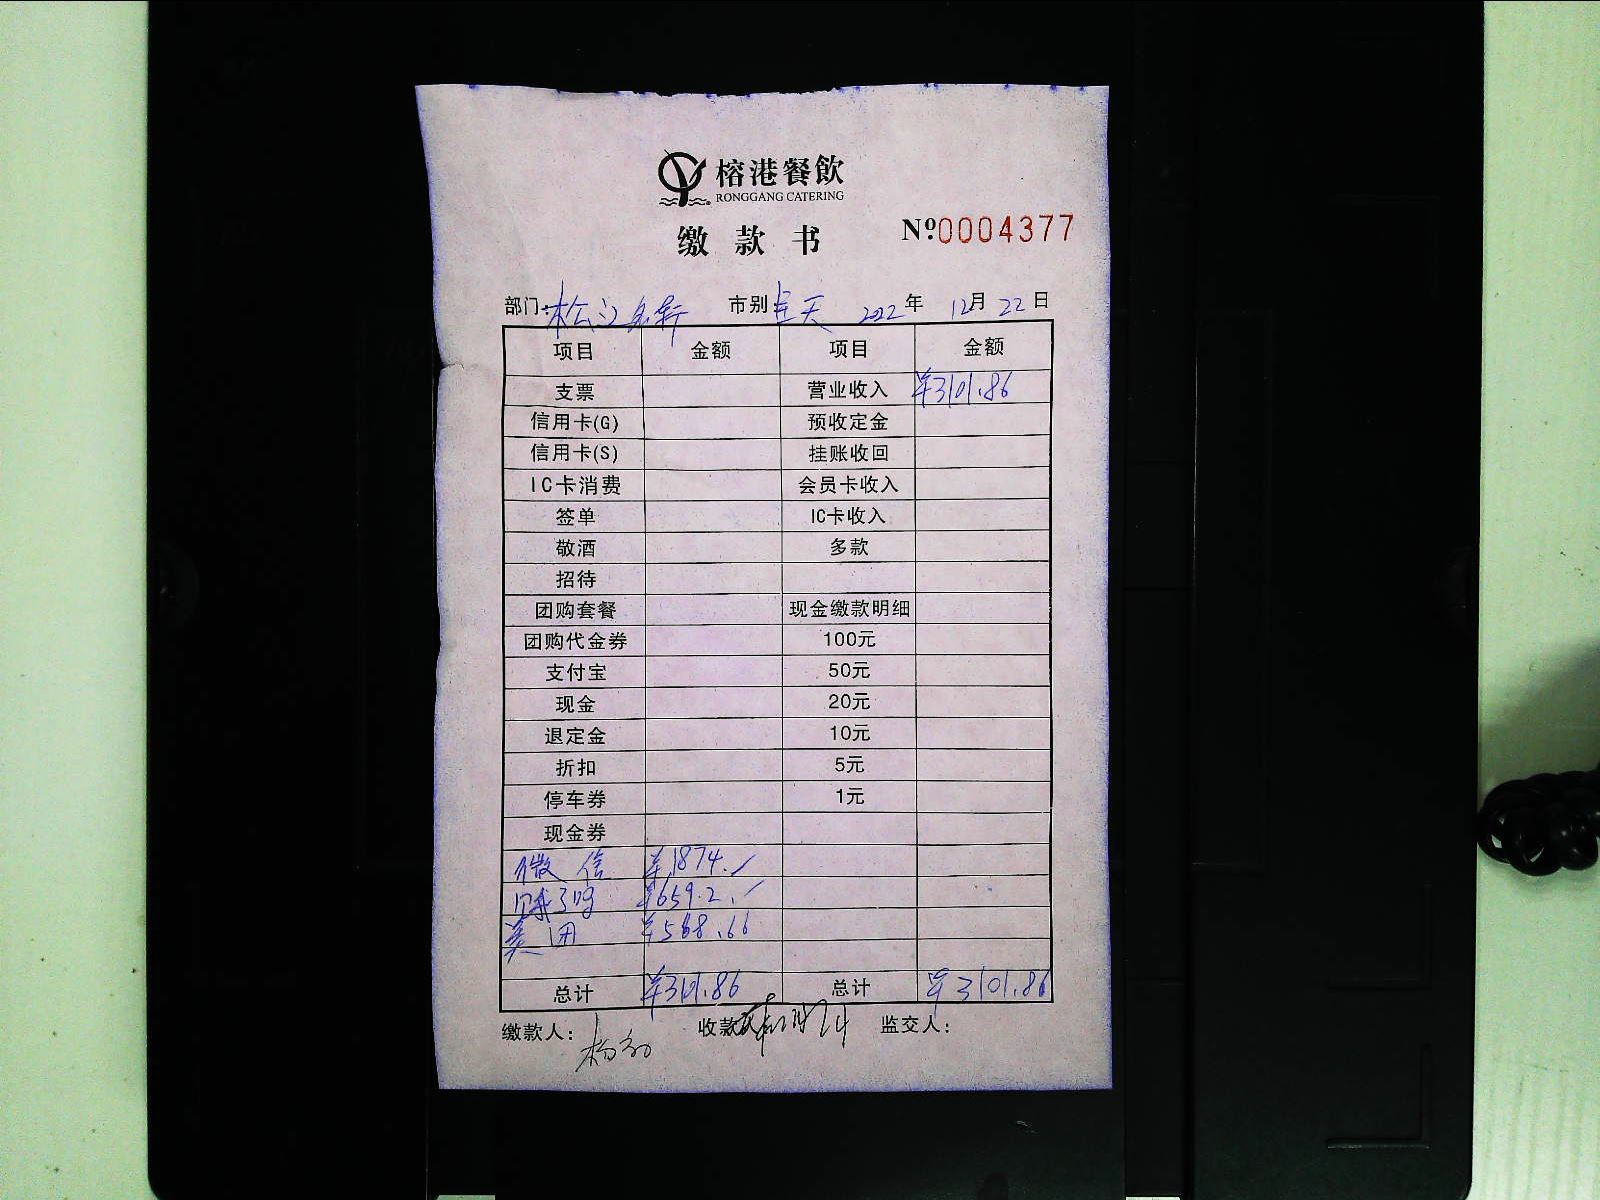 榕港餐飲
RONGGANG CATERING
缴款书
Nº0004377
部门: 松江 市别: 全天 2022年 12月 22日
项目 金额 项目 金额
支票 营业收入 ¥3101.86
信用卡(G) 预收定金
信用卡(S) 挂账收回
IC卡消费 会员卡收入
签单 IC卡收入
敬酒 多款
招待
团购套餐 现金缴款明细
团购代金券 100元
支付宝 50元
现金 20元
退定金 10元
折扣 5元
停车券 1元
现金券
微信 ¥1874.
饿了吗 ¥659.2.
美团 ¥568.66
总计 ¥3101.86 总计 ¥3101.86
缴款人: 收款 监交人: